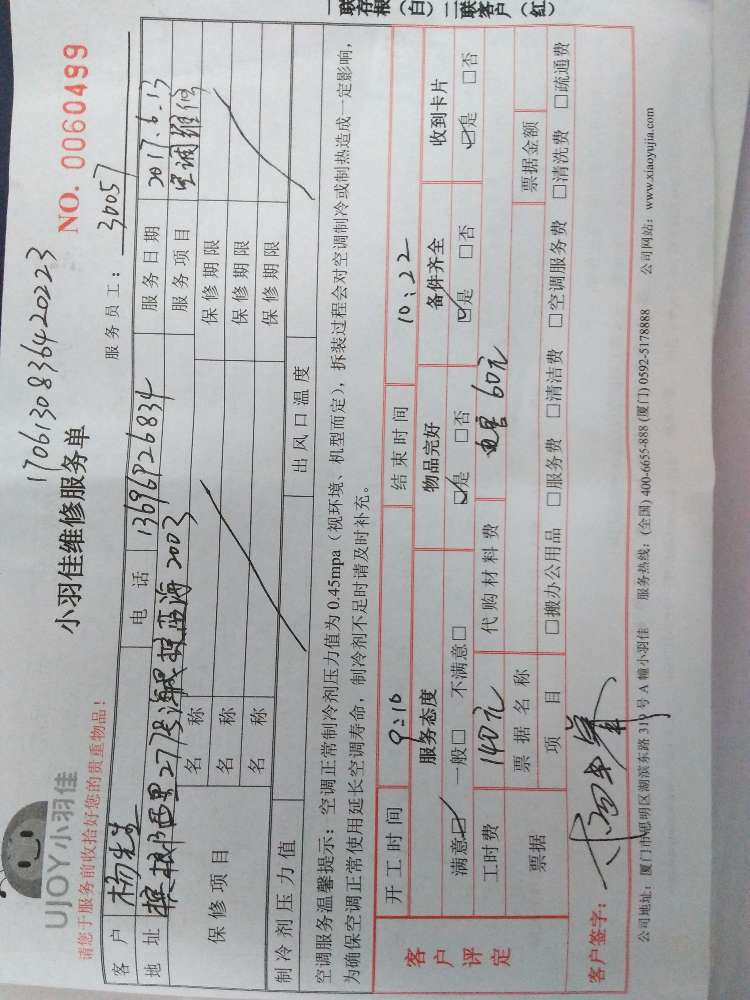 一联存根（白）二联客户（红）
UJOY小羽佳
170613083642 0223
小羽佳维修服务单
NO. 0060499
请您于服务前收拾好您的贵重物品！
服务员工： 30057
客户 杨先生 电话 13696926834 服务日期 2017.6.13
地址 27号 2003 服务项目 空调维修
保修项目 名称 保修期限
名称 保修期限
名称 保修期限
制冷剂压力值 出风口温度
空调服务温馨提示：空调正常制冷剂压力值为 0.45mpa（视环境、机型而定），拆装过程会对空调制冷或制热造成一定影响，
为确保空调正常使用延长空调寿命，制冷剂不足时请及时补充。
客户评定 开工时间 9:10 结束时间 10:22
服务态度 物品完好 备件齐全 收到卡片
满意☑ 一般□ 不满意□ ☑是 □否 ☑是 □否 ☑是 □否
工时费 140元 代购材料费 60元
票据 票据名称 票据金额
项目 □搬办公用品 □服务费 □清洁费 □空调服务费 □清洗费 □疏通费
客户签字：
公司地址：厦门市思明区湖滨东路 319 号 A 幢小羽佳 服务热线：（全国）400-6655-888（厦门）0592-5178888 公司网站：www.xiaoyujia.com